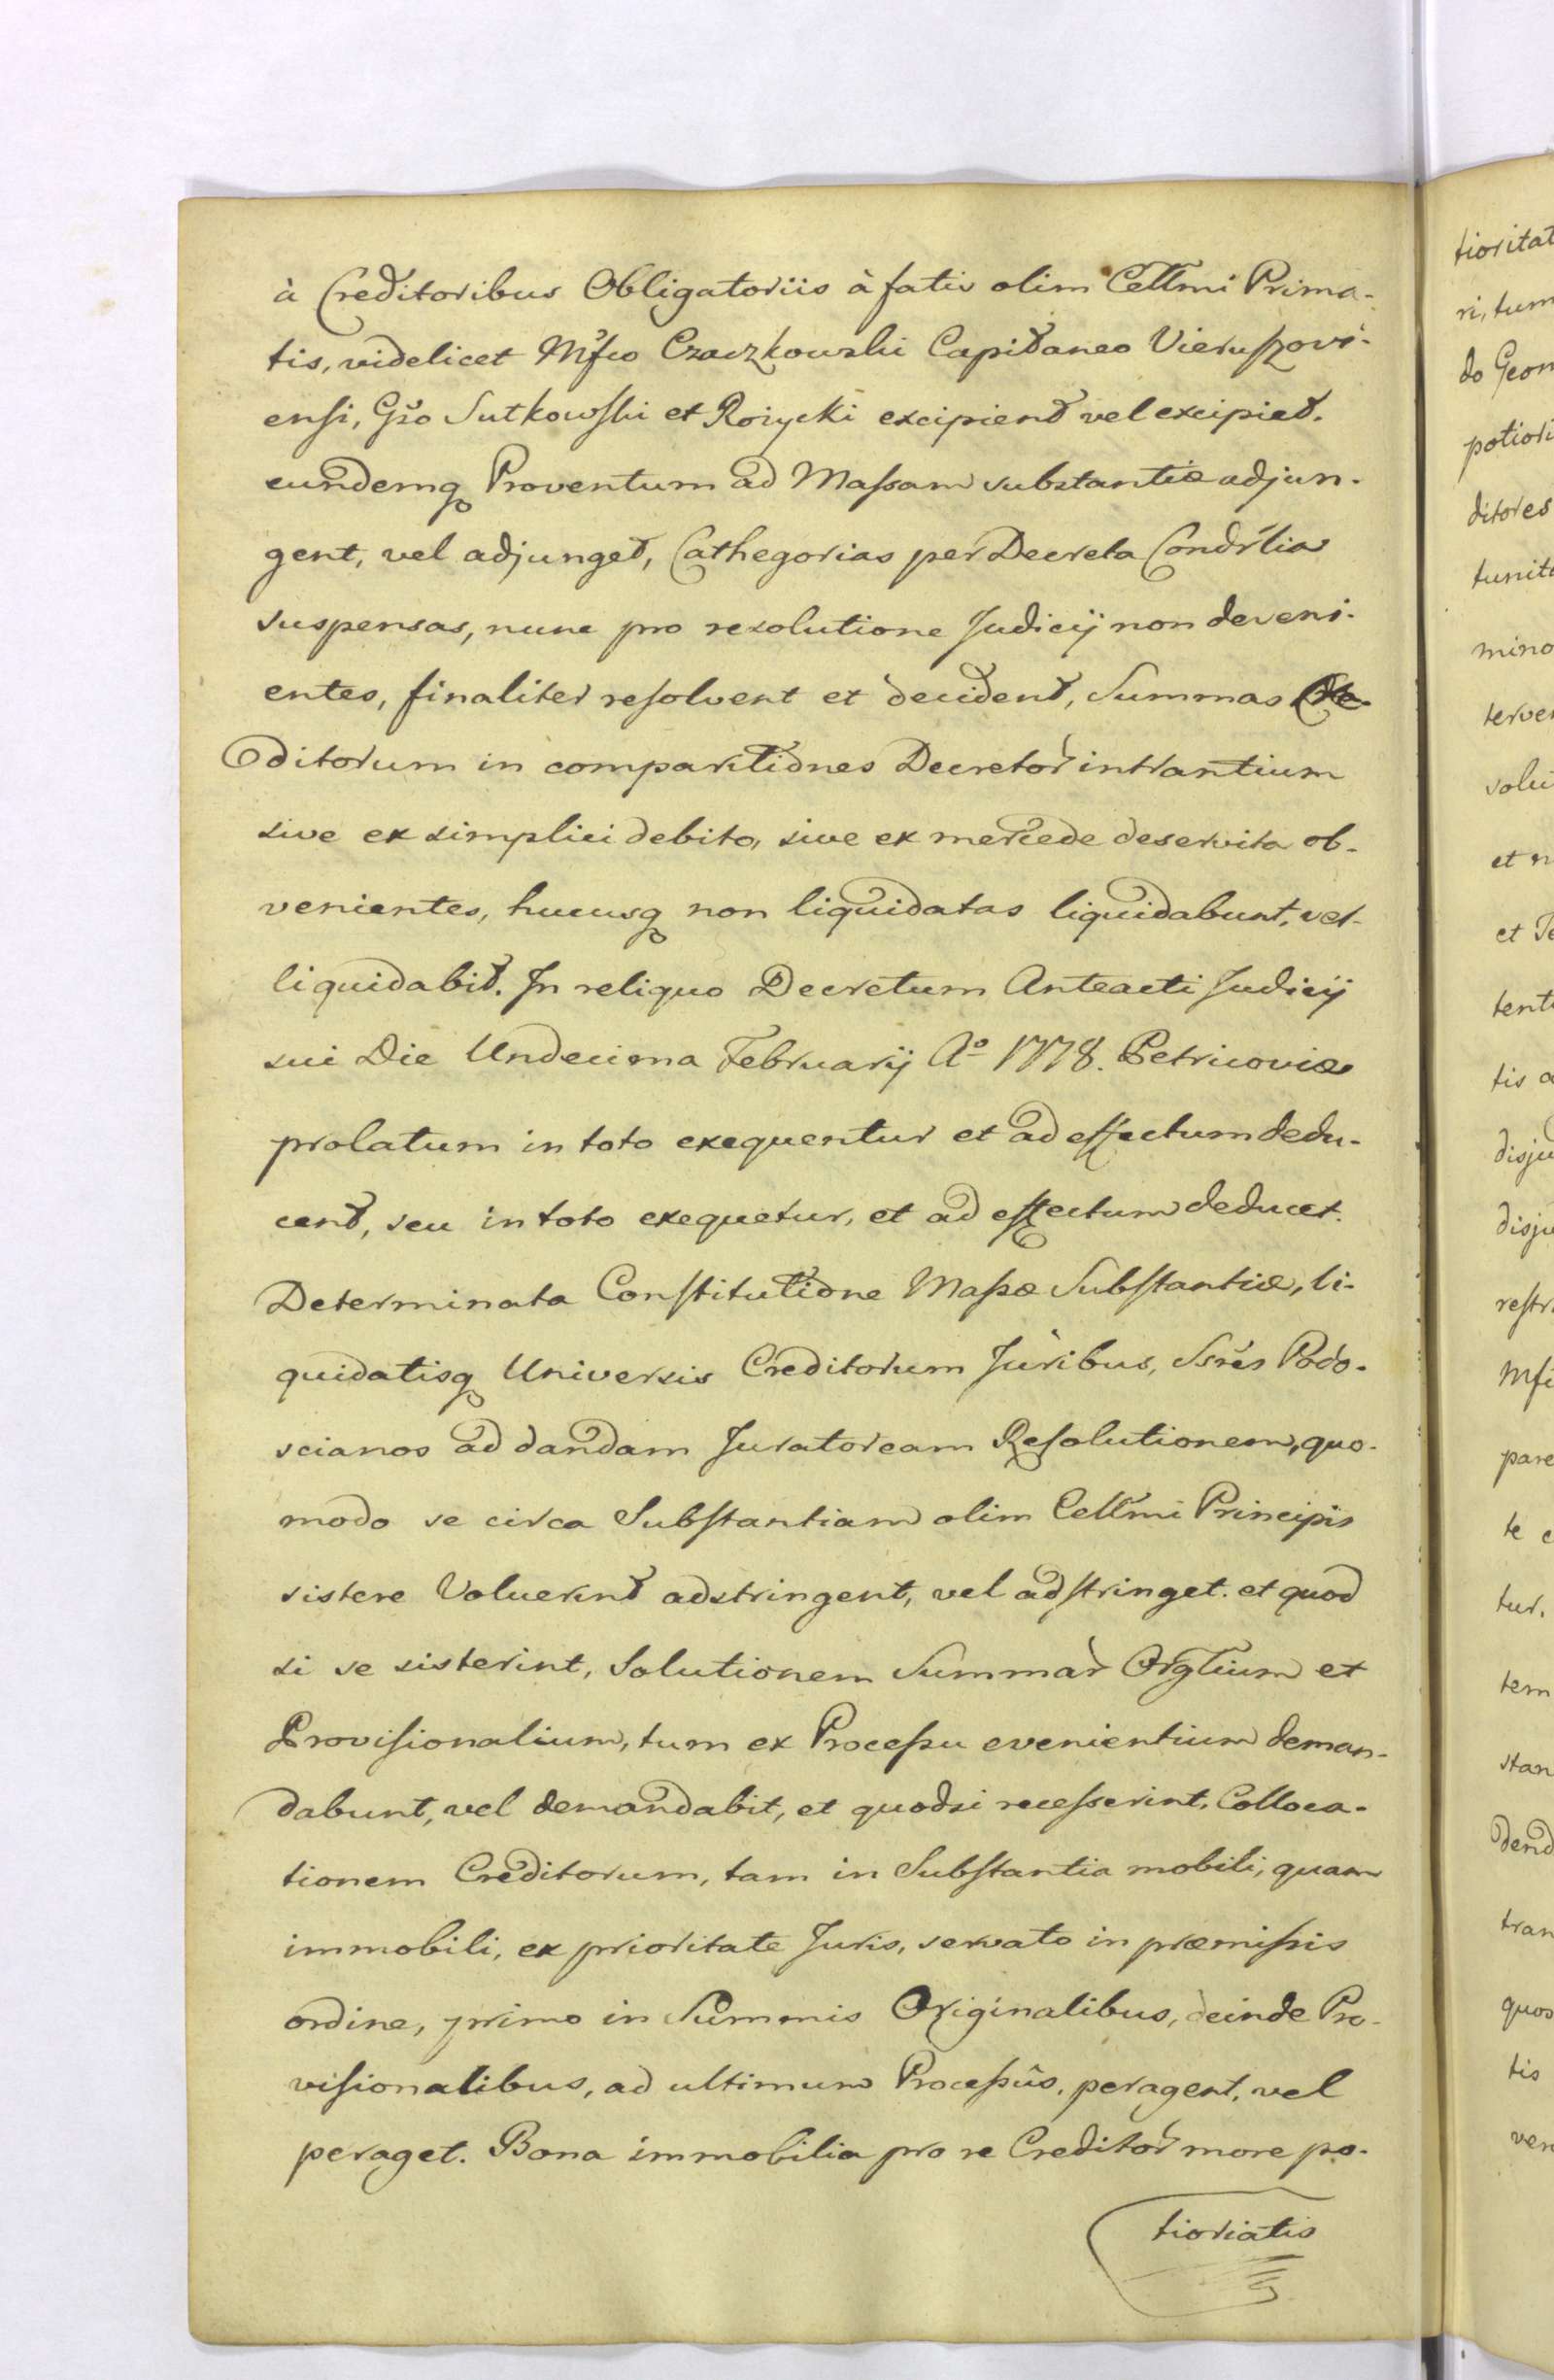 à Creditoribus Obligatoriis à fatis olim Cellm̃i Prima-
tis, videlicet Mfco Czaczkowski Capitaneo Vieruszovi-
ensi, Gso Sutkowski et Rożycki excipient vel excipiet.
eundemq Proventum ad Massam substantiæ adjun-
gent, vel adjunget, Cathegorias per Decreta Condrlia
suspensas, nunc pro resolutione Judicij non deveni-
entes, finaliter resolvent et decident, Summas Cre-
ditorum in comparitiones Decretor intrantium
sive ex simplici debito, sive ex mercede deservita ob-
venientes, hucusq non liquidatas liquidabunt, vel
liquidabit. In reliquo Decretum Anteacti Judicij
sui Die Undecima Februarij Aº 1778. Petricoviæ
prolatum in toto exequentur et ad effectum dedu-
cent, seu in toto exequetur, et ad effectum deducet.
Determinata Constitutione Massæ Substantiæ, li-
quidatisq Universis Creditorum Juribus, Ssres Podo-
scianos ad dandam Juratoream Resolutionem, quo-
modo se circa Substantiam olim Cellm̃i Principis
sistere Voluerint adstringent, vel adstringet. et quod
si se sisterint, Solutionem Summar Orglium et
Provisionalium, tum ex Processu evenientium deman-
dabunt, vel demandabit, et quodsi recesserint, Colloca-
tionem Creditorum, tam in Substantia mobili, quam
immobili, ex prioritate Juris, servato in præmissis
ordine, primo in Summis Originalibus, deinde Pro-
visionalibus, ad ultimum Processûs, peragent, vel
peraget. Bona immobilia pro re Creditor more po-
tioriatis
tioritat
ri, tum
do Geom
potiori
ditores
tunita
mino
terven
solu
et n
et Te
tent
tis a
disju
disju
restr
Mfi
pare
te c
tur.
tem
stan
dend
tran
quos
tis
ven